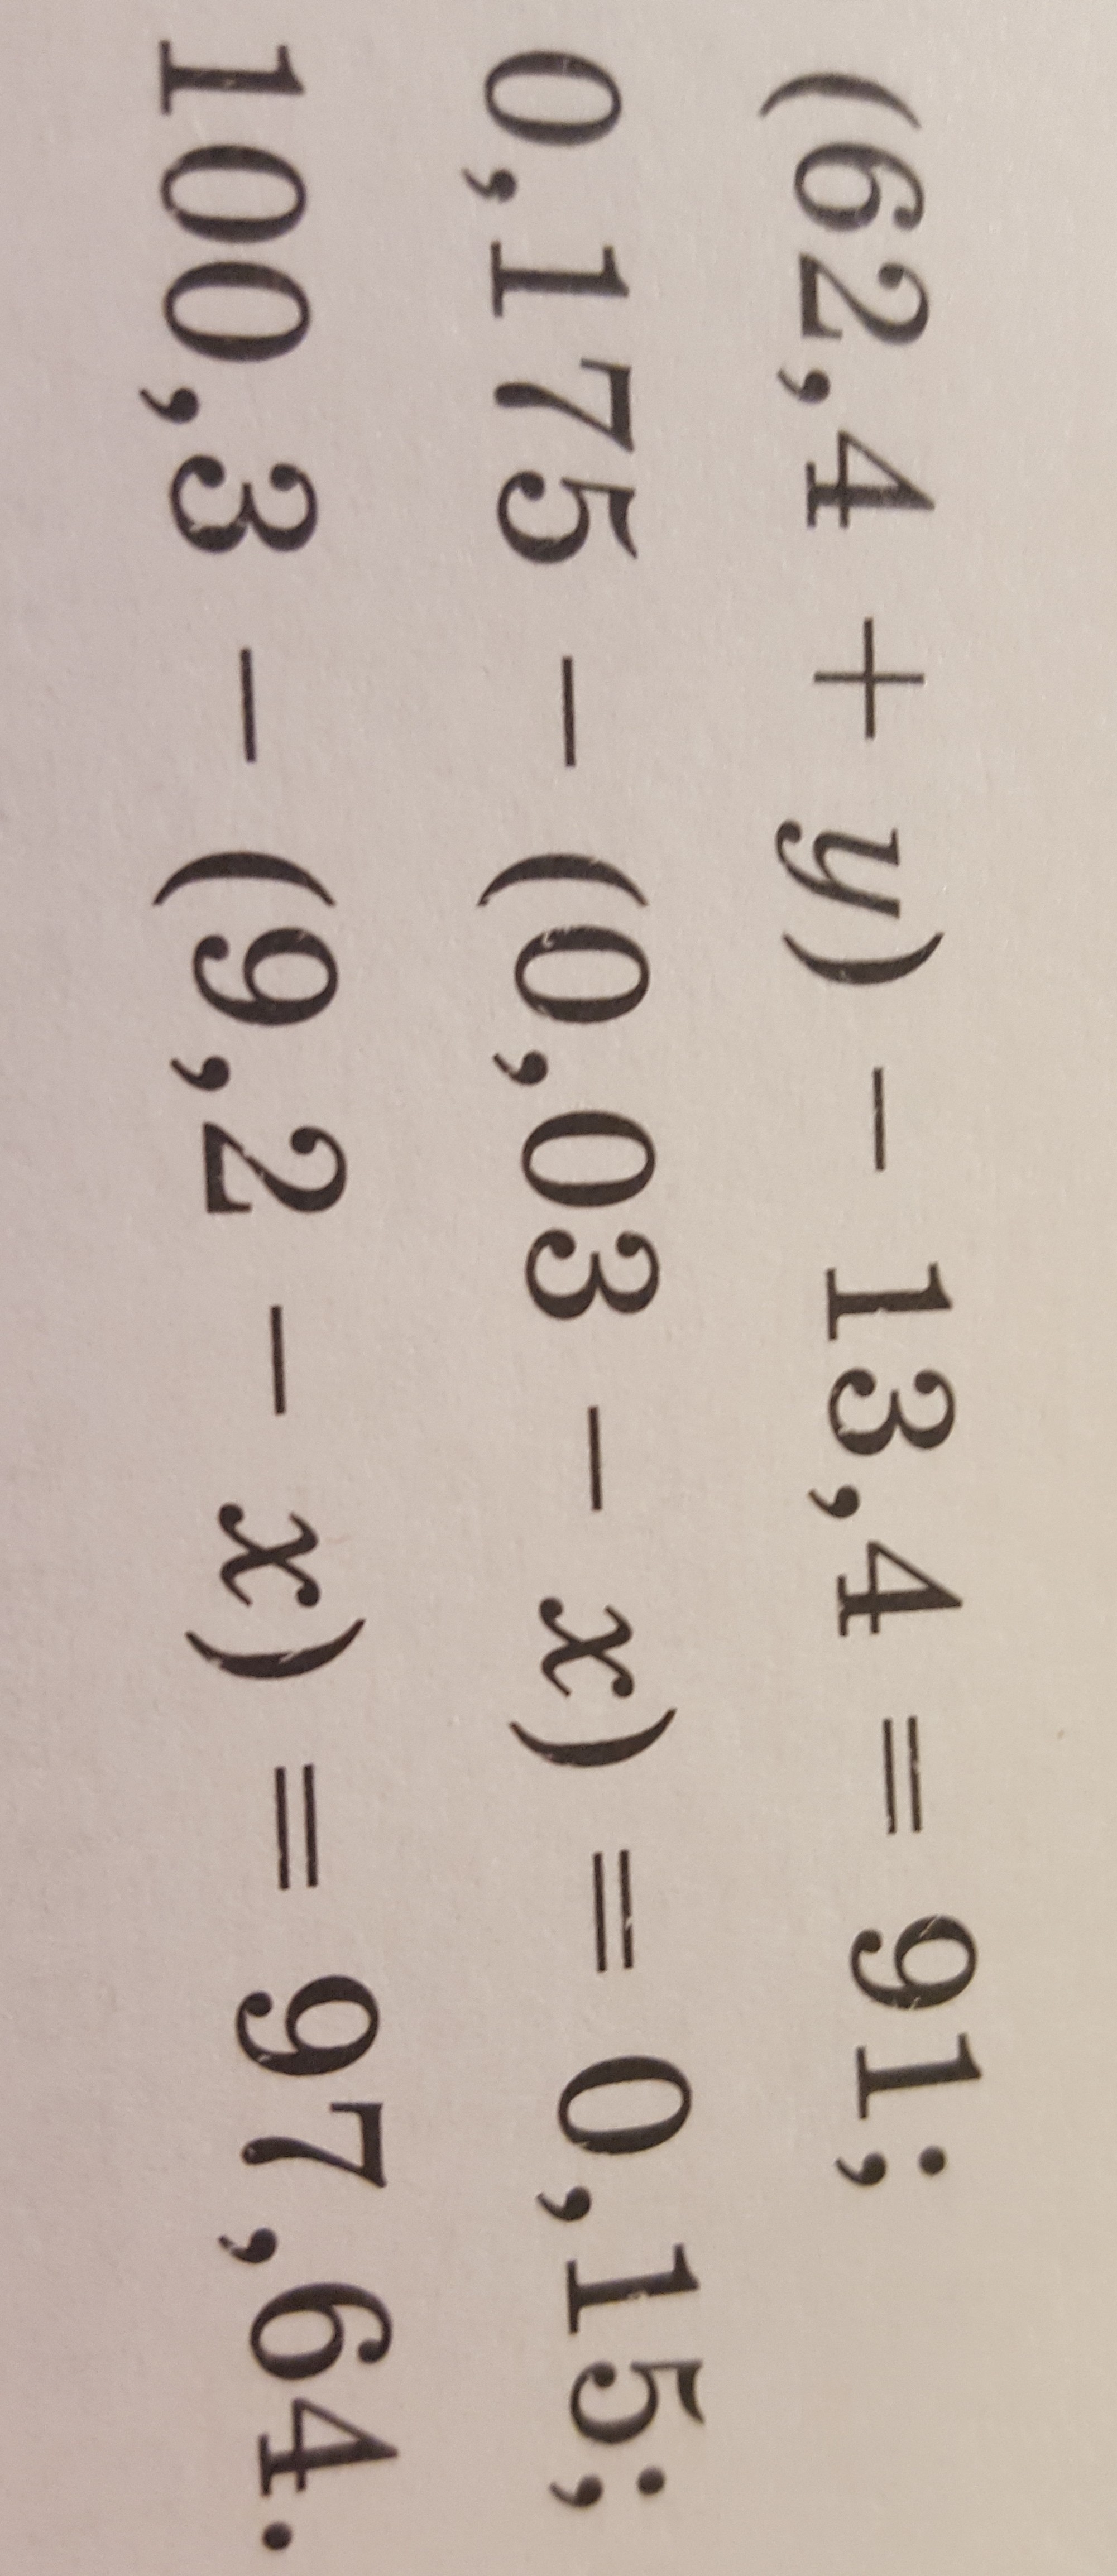 (62,4 + y) – 13,4 = 91;
0,175 – (0,03 – x) = 0,15;
100,3 – (9,2 – x) = 97,64.